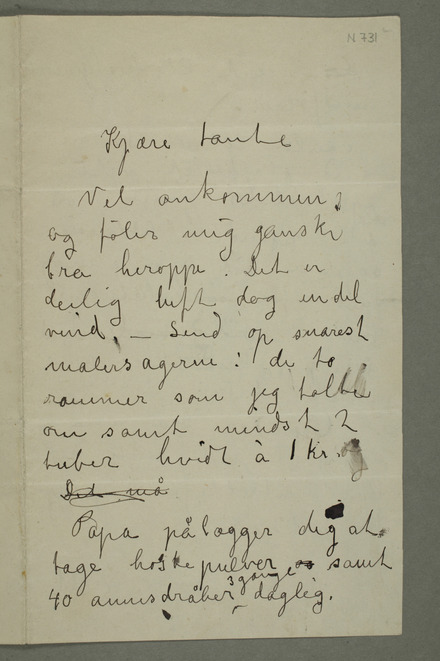 N 731
Kjære tante
Vel ankommen,
og føler mig ganske
bra heroppe. Det er
deilig luft dog endel
vind, – Send op snarest
malersagerne: de to
rammer som jeg talte
om samt mindst 2
tuber hvidt à 1 kr. og
Det må
Papa pålægger dig at
tage hostepulver samt
3 gange
40 annisdråber daglig.